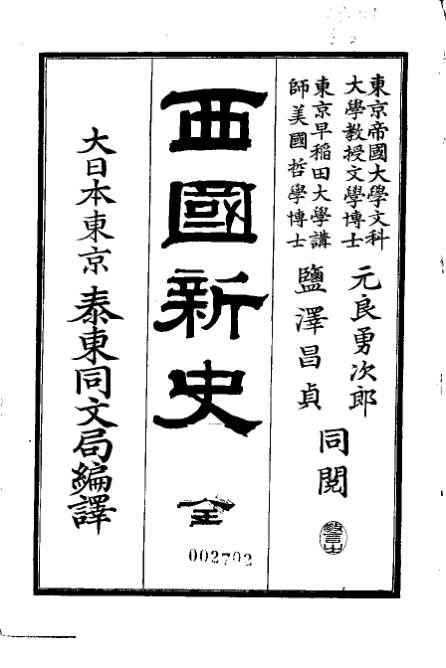 東京帝國大學文科
大學教授文學博士
元良勇次郎
東京早稲田大學講
師美國哲學博士
鹽澤昌貞
同閲
西國新史
全
002702
大日本東京 泰東同文局編譯